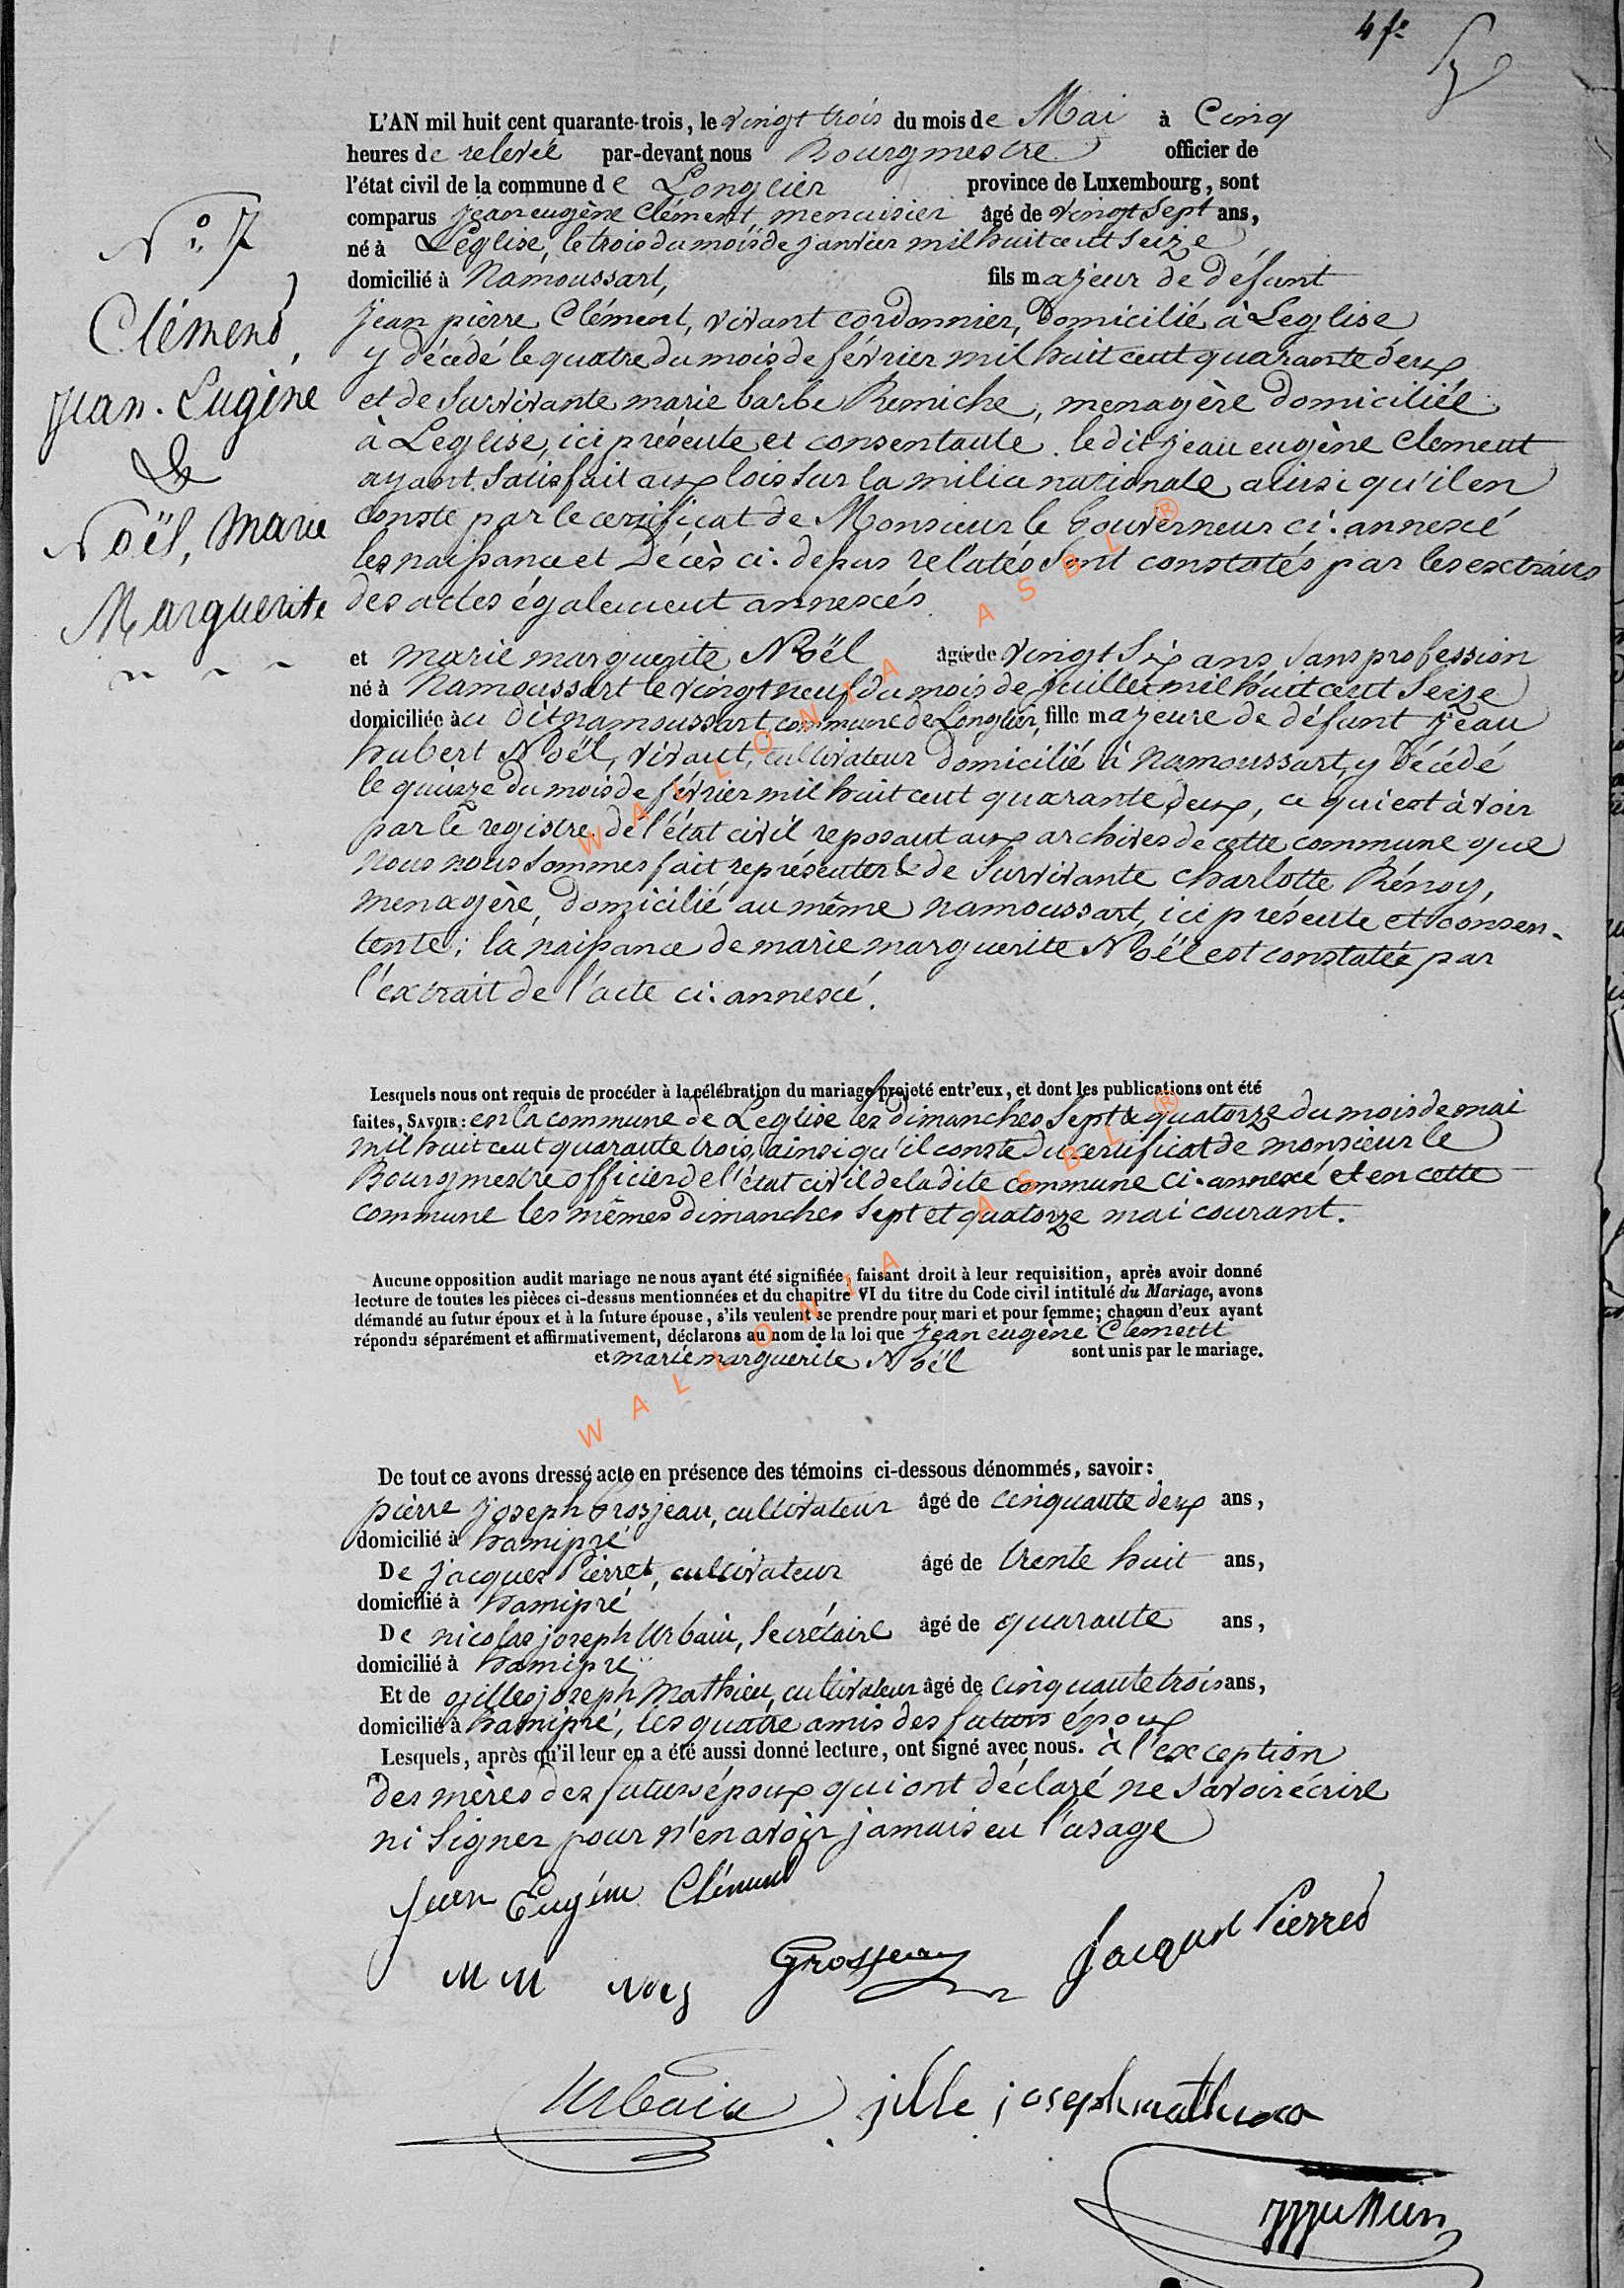 4 f.
L'AN mil huit cent quarante-trois, le vingt trois du mois de Mai à Cinq
heures de relevée par-devant nous Bourgmestre officier de
l'état civil de la commune de Longlier province de Luxembourg, sont
comparus jean eugène Clément menuisier âgé de vingt sept ans,
né à Léglise, le trois du mois de janvier mil huit cent seize
domicilié à Namoussart, fils majeur de défunt
jean pierre Clément, vivant cordonnier, domicilié à Leglise
y décédé le quatre du mois de février mil huit cent quarante deux
et de survivante marie barbe Remiche, menagère domiciliée
à Leglise, ici présente et consentante. le dit jean eugène Clement
ayant satisfait aux lois sur la milice nationale ainsi qu'il en
conste par le certificat de Monsieur le Gouverneur ci-annexé
les naissance et décès ci-dessus relatés sont constatés par les extraits
des actes également annexés.
N° 7
Clément,
Jean-Eugène
&
Noël, Marie
Marguerite
et marie marguerite Noël âgée de vingt six ans sans profession
né à Namoussart le vingt neuf du mois de juillet mil huit cent seize
domiciliée à u dit namoussart, commune de Longlier, fille majeure de défunt jean
hubert Noël, vivant, cultivateur domicilié à Namoussart, y décédé
le quinze du mois de février mil huit cent quarante deux, ce qui est à voir
par le registre de l'état civil reposant aux archives de cette commune que
nous nous sommes fait représenter & de survivante charlotte Rénoy,
menagère, domicilié au même namoussart, ici présente et consen-
tente; la naissance de marie marguerite Noël est constatée par
l'extrait de l'acte ci-annexé.
Lesquels nous ont requis de procéder à la célébration du mariage projeté entr'eux, et dont les publications ont été
faites, SAVOIR: en la commune de Leglise les dimanches sept & quatorze du mois de mai
mil huit cent quarante trois, ainsi qu'il conste du certificat de monsieur le
Bourgmestre officier de l'état civil de la dite commune ci-annexé et en cette
commune les mêmes dimanches sept et quatorze mai courant.
Aucune opposition audit mariage ne nous ayant été signifiée, faisant droit à leur requisition, après avoir donné
lecture de toutes les pièces ci-dessus mentionnées et du chapitre VI du titre du Code civil intitulé du Mariage, avons
démandé au futur époux et à la future épouse, s'ils veulent se prendre pour mari et pour femme; chacun d'eux ayant
répondu séparément et affirmativement, déclarons au nom de la loi que jean eugène Clément
et marie marguerite Noël sont unis par le mariage.
De tout ce avons dressé acte en présence des témoins ci-dessous dénommés, savoir:
pierre joseph Grosjean, cultivateur âgé de cinquante deux ans,
domicilié à hamipré
De jacques Pierret, cultivateur âgé de trente huit ans,
domicilié à hamipré
De nicolas joseph Urbain, secrétaire âgé de quarante ans,
domicilié à hamipré
Et de gilles joseph Mathieu, cultivateur âgé de cinquante trois ans,
domicilié à hamipré, les quatre amis des futurs époux
Lesquels, après qu'il leur en a été aussi donné lecture, ont signé avec nous. à l'exception
des mères des futurs époux qui ont déclaré ne savoir écrire
ni signer pour n'en avoir jamais eu l'usage
Jean Eugène Clément
M M Noël Grosjean Jacques Pierret
Urbain jille joseph mathieu
WALLONIA ASBL ®
WALLONIA ASBL ®